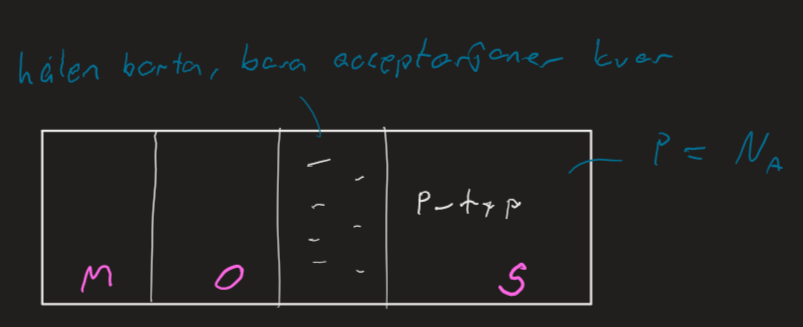 hålen borta, bara acceptorjoner kvar
P = N_A
P-typ
M O S